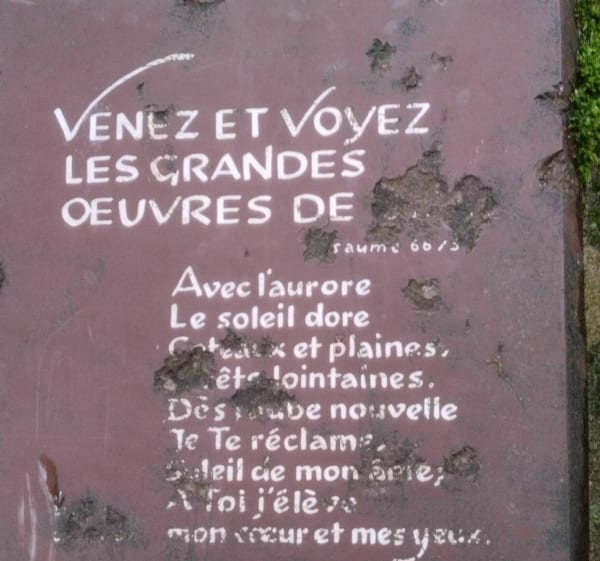 VENEZ ET VOYEZ
LES GRANDES
OEUVRES DE
Psaume 66/5
Avec l'aurore
Le soleil dore
Coteaux et plaines,
Forêts lointaines.
Dès l'aube nouvelle
Je Te réclame,
Soleil de mon âme,
A Toi j'élève
mon cœur et mes yeux.